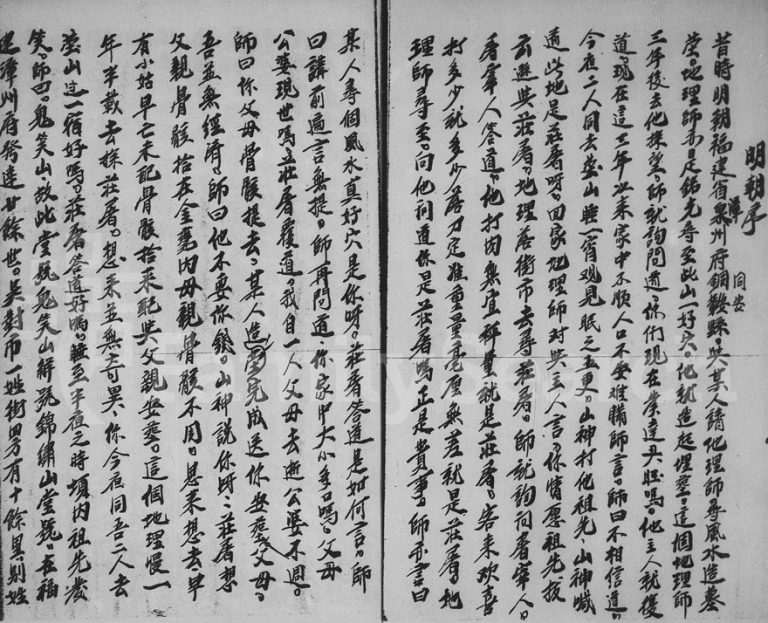 明朝序
昔時明朝福建省泉州府銅鞍縣與某人請地理師尋風水造墓
漳
同安
瑩地理師亦是銘光尋至此山一好穴他就造起埋葬這個地理師
三年後去他探望師就詢問道你們現在業達興旺嗎他主人就復
道現在這三年以來家中不順人口不安难購師言師曰不相信道
今夜二人同去瑩山睡一宵观見眠之五更山神打他祖先山神喊
道此地是莊屠呀回家地理師对與主人言你情愿祖先拔
去遊與莊屠地理落街市去尋莊屠師就詢问屠宰人
看宰人答道他打肉無宜秤量就是莊屠客来欢喜
打多少就多少落刀定准重量毫厘無差就是莊屠地
理師尋至向他问道你是莊屠嗎正是貴事師亦言曰
某人尋個風水真好穴是你呀莊屠答道是如何言師
曰講前遍言無提師再問道你家中大小多口嗎父母
公婆現世嗎莊屠覆道我自一人父母去逝公婆不週
師曰你父母骨骸提去某人造瑩完成送你安葬父母
吾並無經濟師曰他不要你錢山神說你呀莊屠想
父親骨骸拾在金甕内母親骨骸不周思来想去早
有小姑早亡未配骨骸拾来配與父親安葬這個地理慢一
年半載去探莊屠想来並無奇異你今夜同吾二人去
瑩山过一宿好嗎莊屠答道好嗎睡至半夜之時墳内祖先發
笑師曰鬼笑山故此堂號鬼笑山解號錦繡山堂號在福
建漳州府發達廿餘世吳對市一姓街四方有十餘里別姓